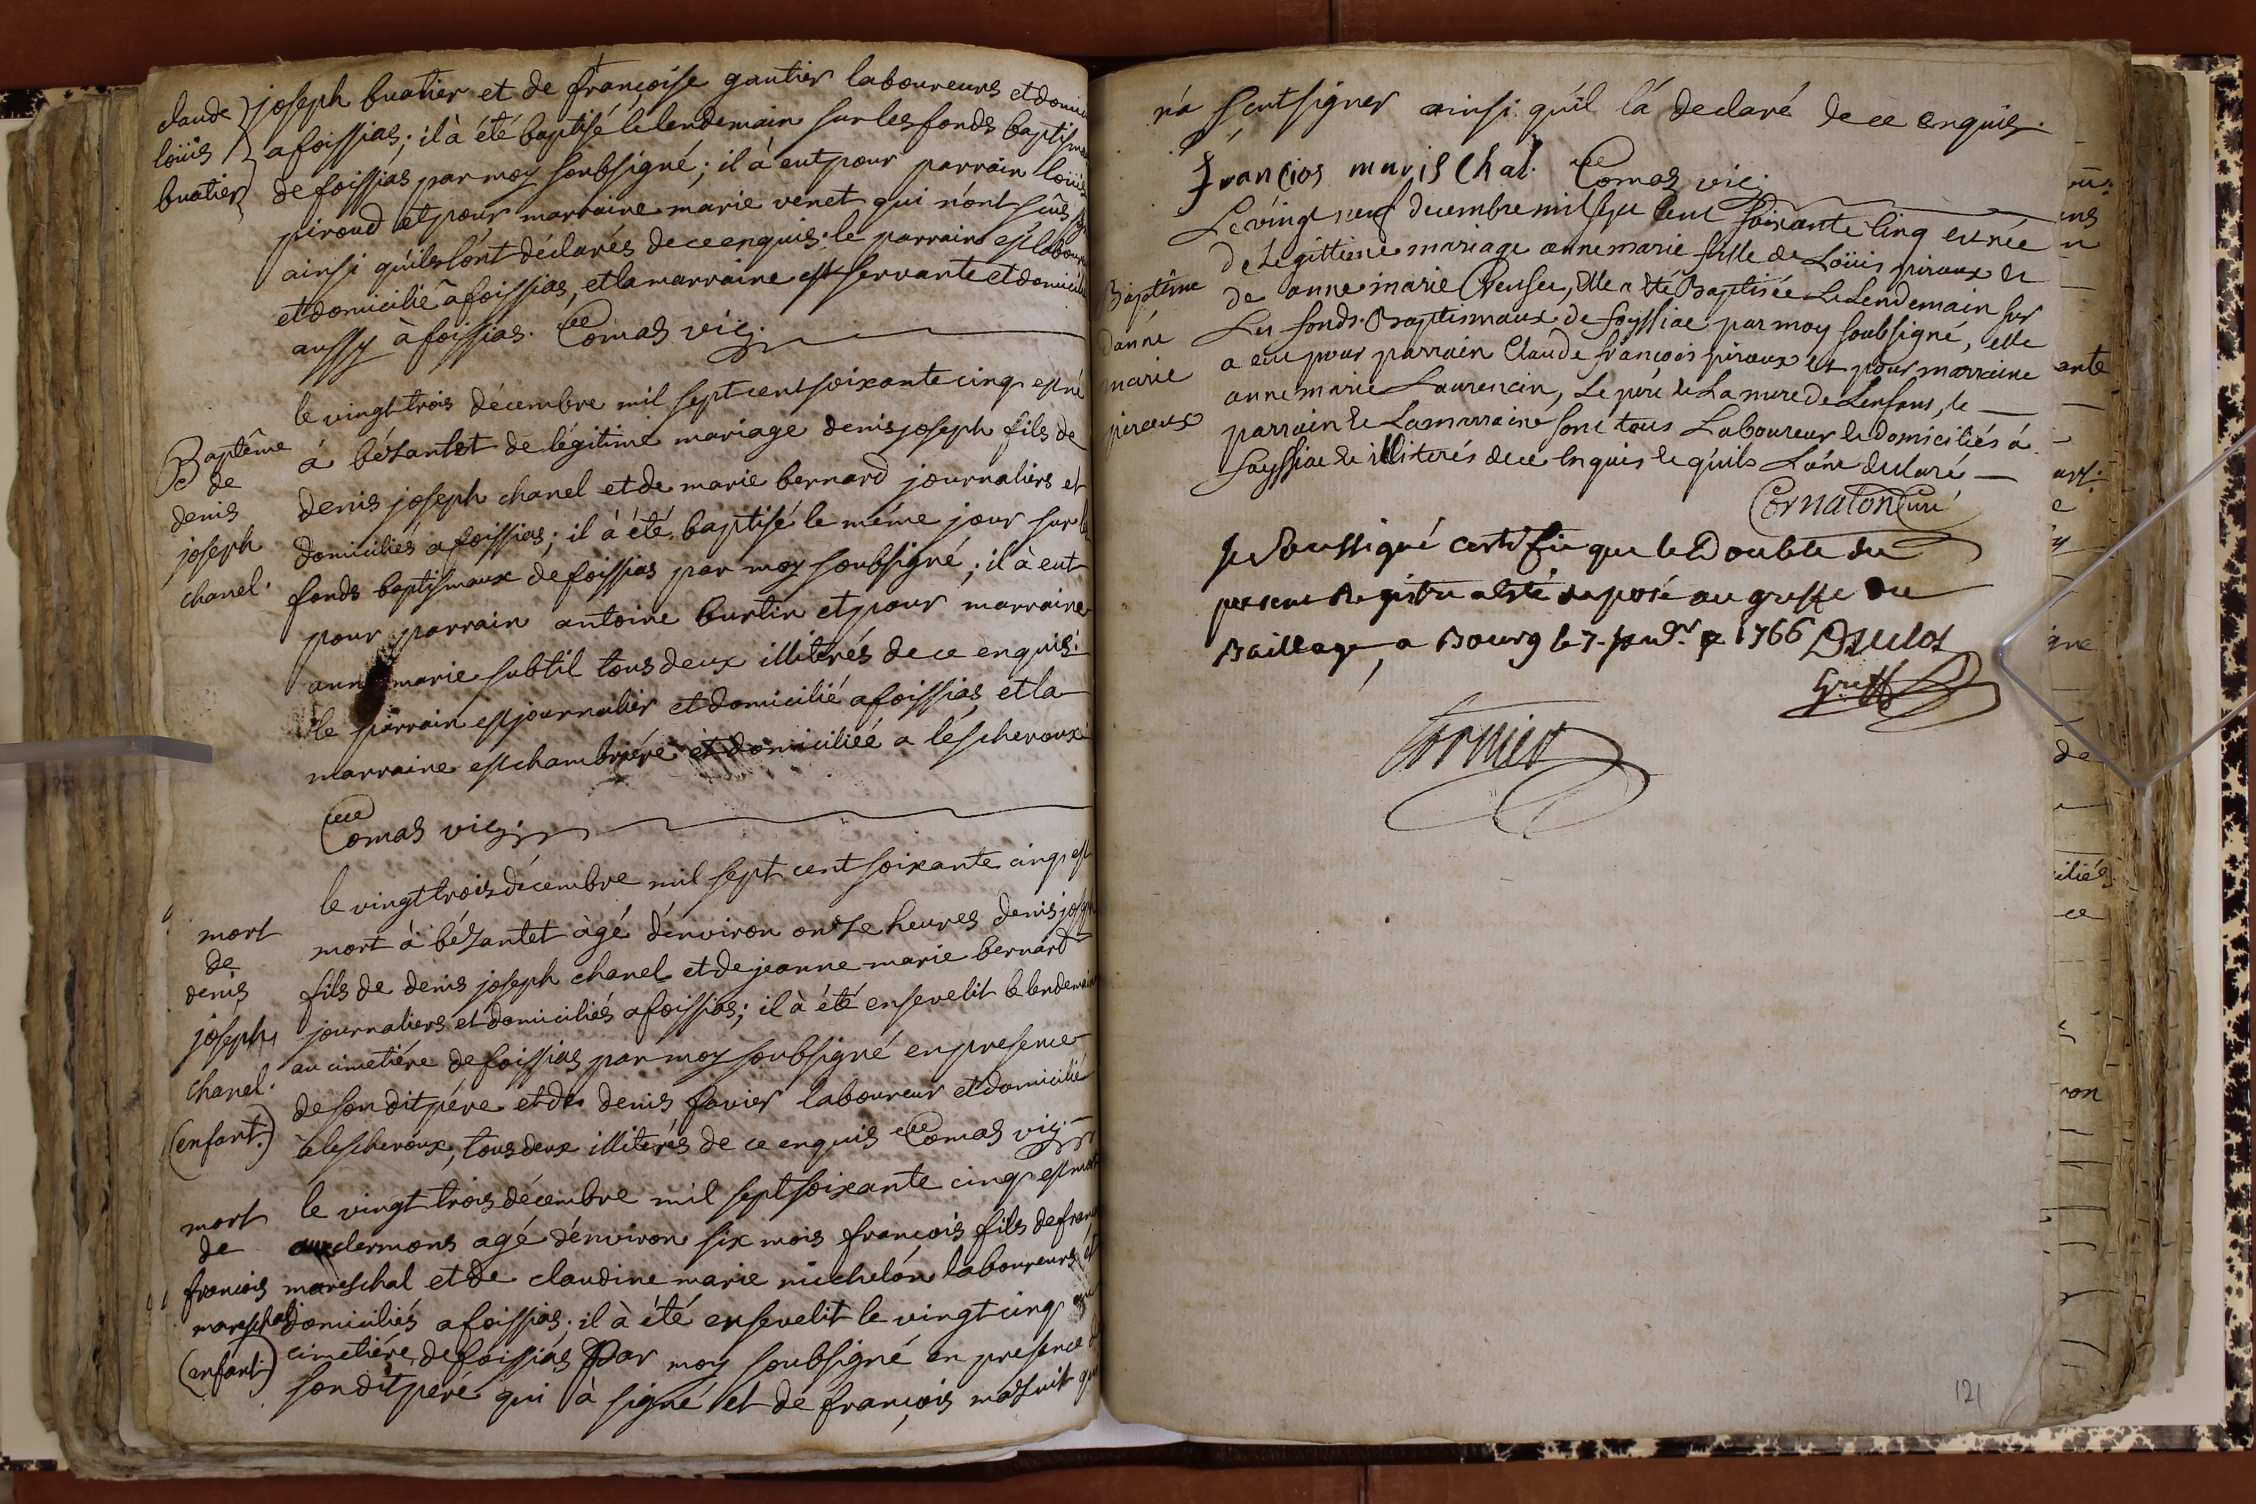 claude
loüis
buatier
joseph buatier et de françoise gautier laboureurs et domici
a foissias; il à été baptisé le lendemain sur les fonds baptisma
de foissias par moy soubsigné; il à eut pour parrain loüis
piroud et pour marraine marie venet qui n'ont sçûs
ainsi qu'ils l'ont déclarés de ce enquis. le parrain est labour
et domicilié a foissias, et la marraine est servante et domicili
aussy à foissias. Comas vic.
Baptême
de
denis
joseph
chanel.
le vingt trois décembre mil sept cent soixante cinq est né
à bézantet de légitime mariage denis joseph fils de
denis joseph chanel et de marie bernard journaliers et
domiciliés a foissias; il à été baptisé le même jour sur les
fonds baptismaux de foissias par moy soubsigné; il à eut
pour parrain antoine burtin et pour marraine
anne marie subtil tous deux illiterés de ce enquis.
le parrain est journalier et domicilié a foissias et la
marraine est chambriére et domiciliéé a léscheroux
Comas vic.
mort
de
denis
joseph
chanel.
(enfant.)
le vingt trois décembre mil sept cent soixante cinq est
mort à bézantet àgé d'énviron onze heures denis joseph
fils de denis joseph chanel et de jeanne marie bernard
journaliers et domiciliés a foissias; il à été ensevelit le lendemain
au cimetiére de foissias par moy soubsigné en presence
de son dit pére et de denis favier laboureur et domicilié
à lescheroux, tous deux illiterés de ce enquis Comas vic.
mort
de
francois
mareschal
(enfant)
le vingt trois décembre mil sept soixante cinq est mort
aux clermons agé d'énviron six mois françois fils de franç
mareschal et de claudine marie michelon laboureurs et
domiciliés a foissias; il à été ensevelit le vingt cinq au
cimetiére de foissias Par moy soubsigné en presence de
son dit pére qui à signé et de françois mazuit qui
n'a sçut signer ainsi qu'il l'à declaré de ce enquis.
françios marisChal. Comas vic.
Baptême
d'anne
marie
piroux
Le vingt neuf decembre mil sept Cent soixante Cinq est née
de Legittime mariage anne marie fille de Loüis piroux et
de anne marie Creuser, Elle a été Baptisée Le Lendemain sur
Les fonds Baptismaux de foyssiac par moy soubsigné, elle
a eu pour parrain Claude françois piroux et pour marraine
anne marie Laurencin, Le pere et La mere de L'enfant, le
parrain et La marraine sont tous Laboureur et domiciliés à
foyssiac et illiterés de ce Enquis et qu'ils L'ont declaré
Cornaton Curé
Je Soussigné certifie que le Double du
present Registre a été deposé au greffe du
Bailliage, a Bourg le 7. janv.r 1766
Greff
121